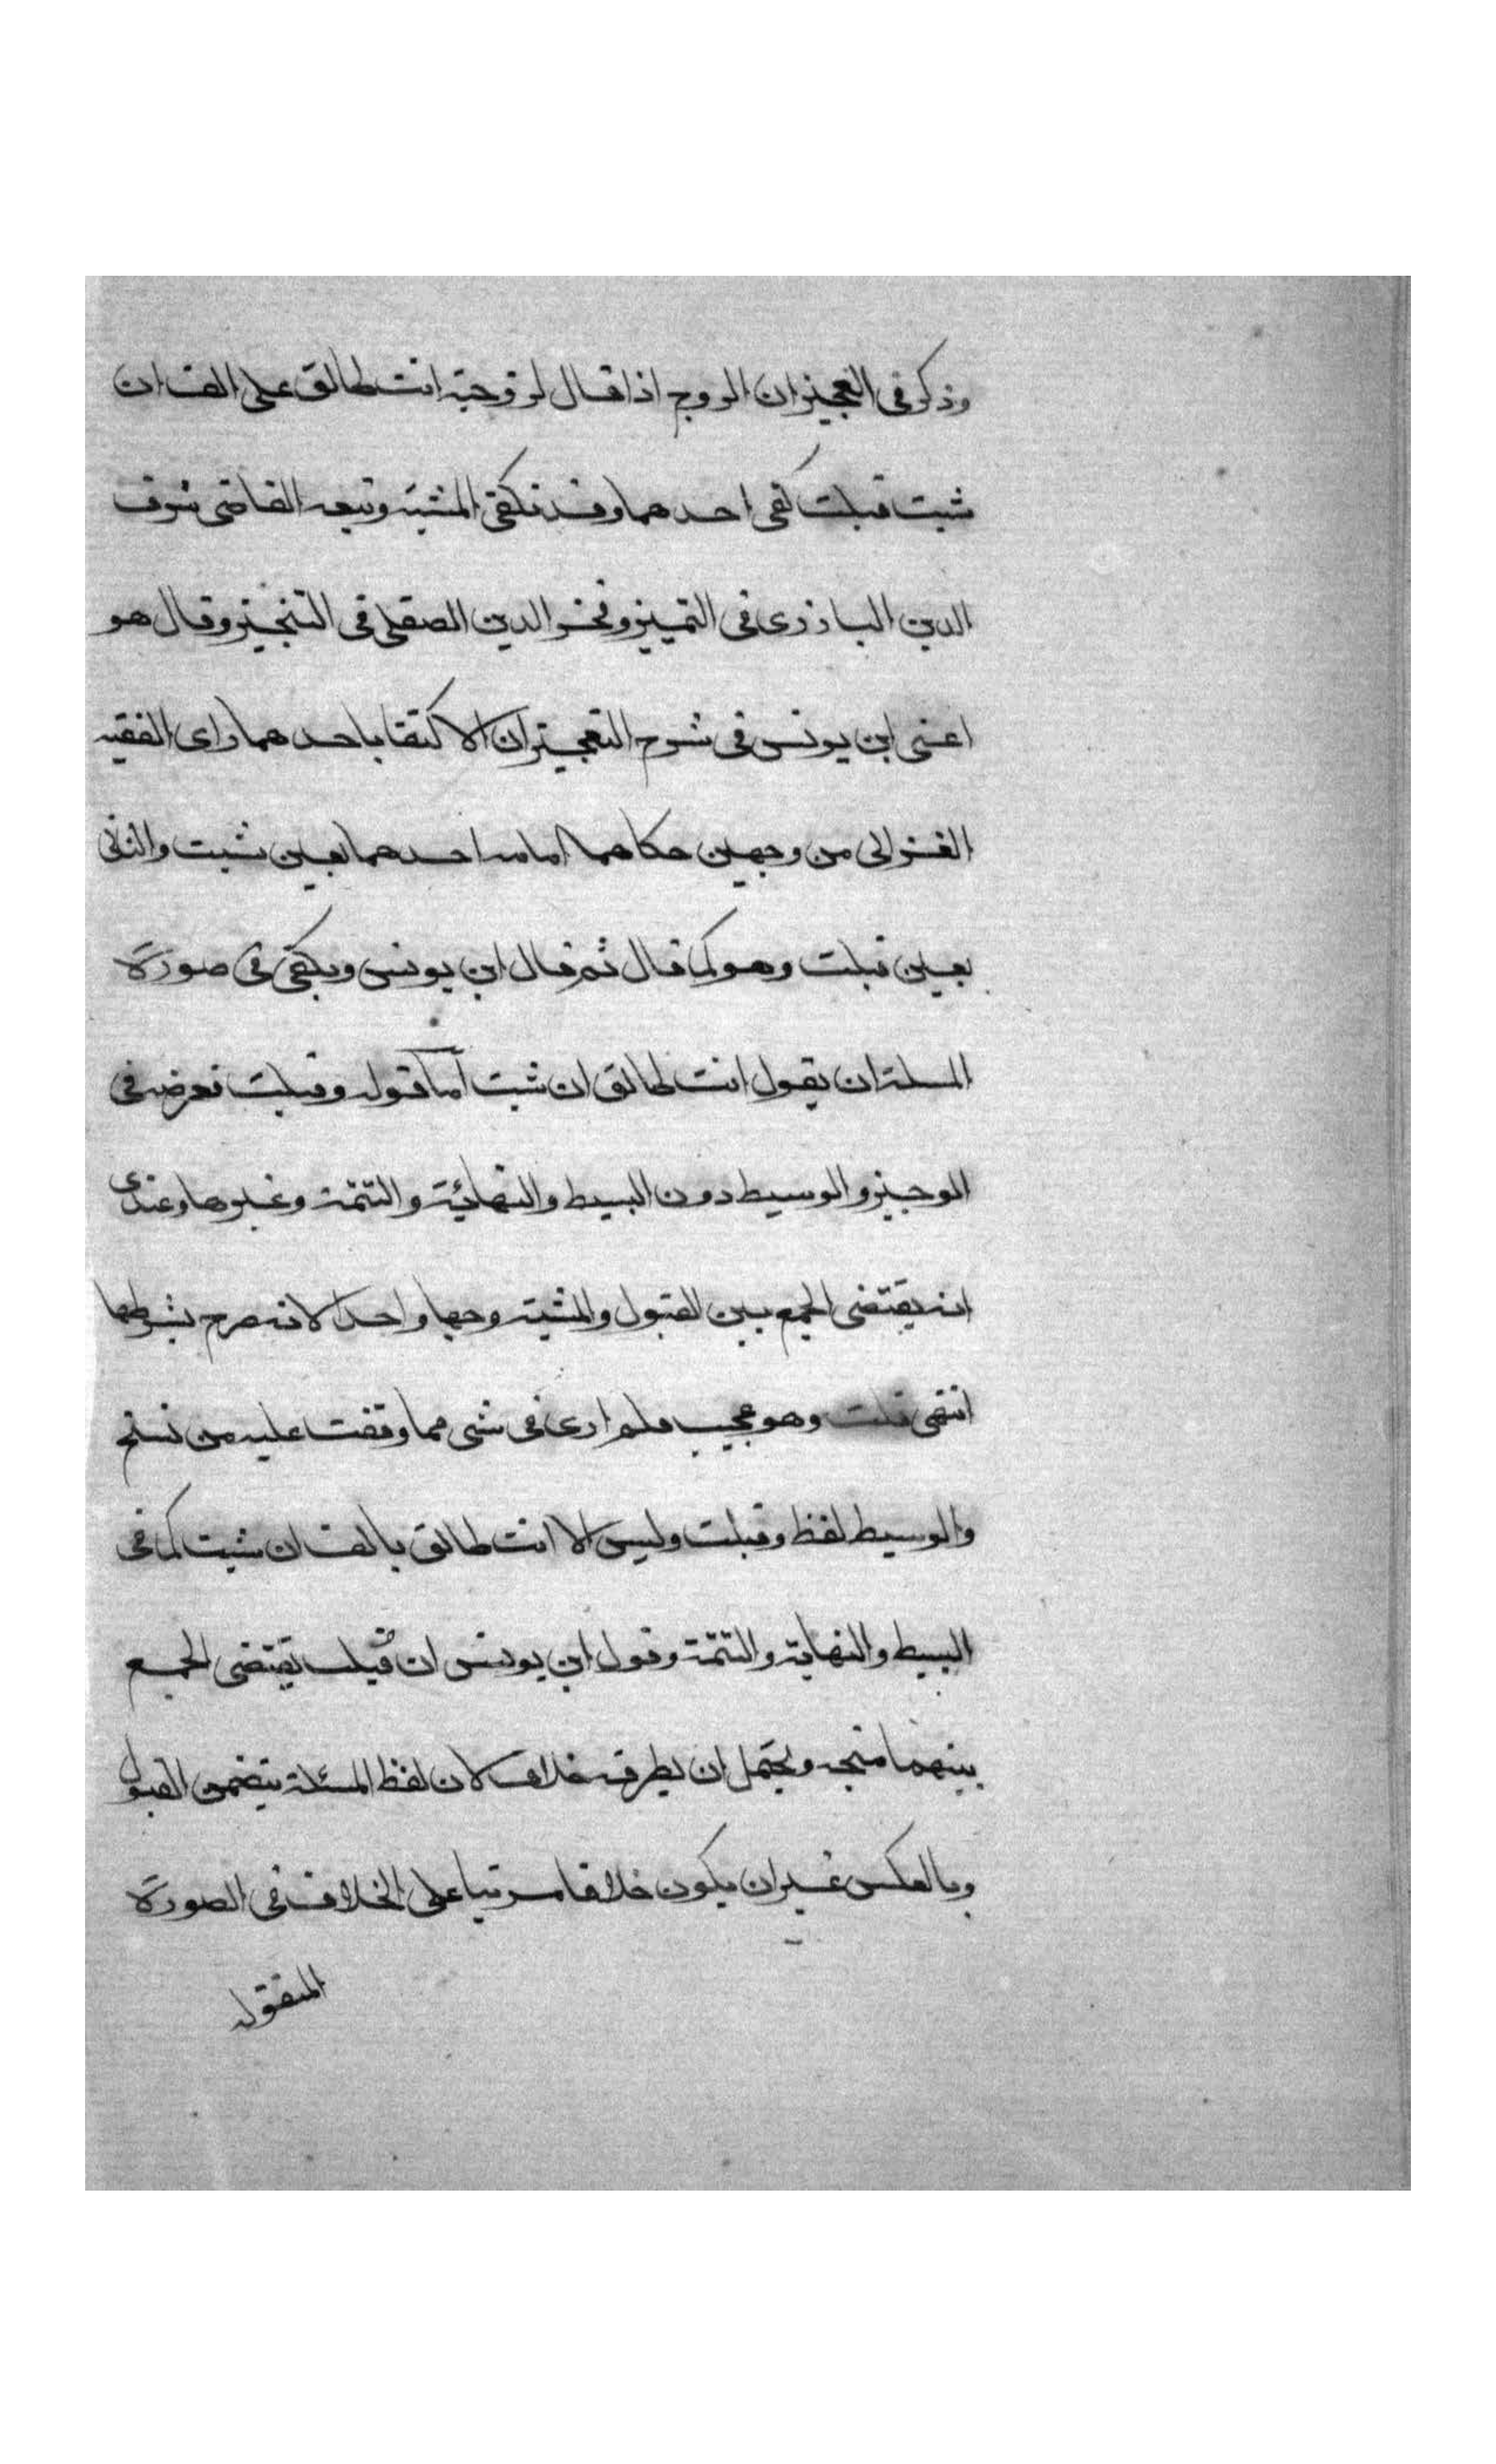 وذكر في التعجيز ان الزوج اذا قال لزوجته انت طالق على الف ان
شيت قبلت كفى احدهما وقد تكفي المشية وتبعه القاضي شرف
الدين البارزي في التمييز وفخر الدين الصقلي في التنجيز وقال هو
اعني ابن يونس في شرح التعجيز ان الاكتفا باحدهما راى الفقيه
الغزالي من وجهين حكاهما امامه احدهما يعين شيت والثاني
يعين قبلت وهو كما قال ثم قال ابن يونس ويكفي في صورة
المسلة ان يقول انت طالق ان شيت اما قوله وقبلت تعرض في
الوجيز والوسيط دون البسيط والنهاية والتتمة وغيرها وعندي
انه يقتضي الجمع بين القبول والمشية وجها واحدا لانه صرح بشرطهما
انتهى قلت وهو عجيب فلم ارى في شي مما وقفت عليه من نسخ
والوسيط لفظ وقبلت وليس الا انت طالق بالف ان شيت كما في
البسيط والنهاية والتتمة وقول ابن يونس ان قبلت يقتضي الجمع
بينهما متجه ويحتمل ان يطرقه خلاف لان لفظ المسئلة يتضمن القبول
وبالعكس غير ان يكون خلافا مرتبا على الخلاف في الصورة
المنقوله